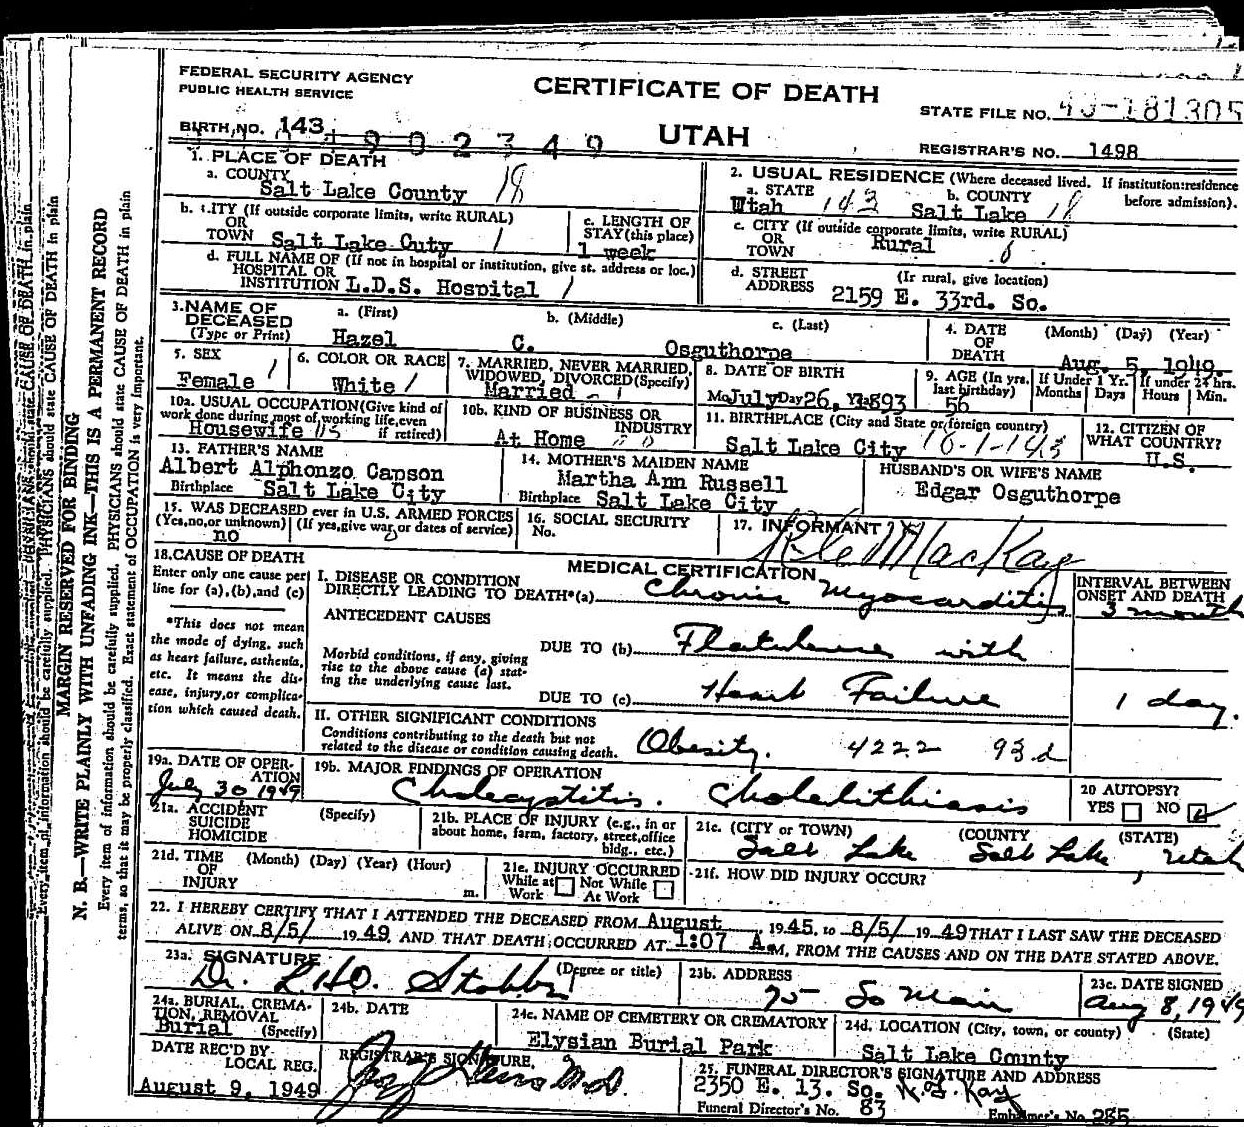 FEDERAL SECURITY AGENCY
PUBLIC HEALTH SERVICE
CERTIFICATE OF DEATH
STATE FILE NO. 49-181305
BIRTH NO. 143 902349
UTAH
REGISTRAR'S NO. 1498
1. PLACE OF DEATH
a. COUNTY
Salt Lake County 18
b. CITY (If outside corporate limits, write RURAL)
OR
TOWN Salt Lake Cuty 1
c. LENGTH OF
STAY (this place)
1 week
d. FULL NAME OF (If not in hospital or institution, give st. address or loc.)
HOSPITAL OR
INSTITUTION L.D.S. Hospital 1
2. USUAL RESIDENCE (Where deceased lived. If institution:residence
before admission).
a. STATE
Utah 143
b. COUNTY
Salt Lake 18
c. CITY (If outside corporate limits, write RURAL)
OR
TOWN
Rural 0
d. STREET
ADDRESS
(Ir rural, give location)
2159 E. 33rd. So.
3. NAME OF
DECEASED
(Type or Print)
a. (First)
Hazel
b. (Middle)
C.
c. (Last)
Osguthorpe
4. DATE
OF
DEATH
(Month) (Day) (Year)
Aug. 5, 1949.
5. SEX
Female 1
6. COLOR OR RACE
White 1
7. MARRIED, NEVER MARRIED,
WIDOWED, DIVORCED (Specify)
Married - 1
8. DATE OF BIRTH
Mo July Day 26, Yr. 1893
9. AGE (In yrs.
last birthday)
56
If Under 1 Yr.
Months Days
If under 24 hrs.
Hours Min.
10a. USUAL OCCUPATION (Give kind of
work done during most of working life, even
if retired)
Housewife
10b. KIND OF BUSINESS OR
INDUSTRY
At Home
11. BIRTHPLACE (City and State or foreign country)
Salt Lake City 18-1-143
12. CITIZEN OF
WHAT COUNTRY?
U.S.
13. FATHER'S NAME
Albert Alphonzo Capson
Birthplace Salt Lake City
14. MOTHER'S MAIDEN NAME
Martha Ann Russell
Birthplace Salt Lake City
HUSBAND'S OR WIFE'S NAME
Edgar Osguthorpe
15. WAS DECEASED ever in U.S. ARMED FORCES
(Yes, no, or unknown) (If yes, give war or dates of service)
no 0
16. SOCIAL SECURITY
No.
17. INFORMANT
MacKay
18. CAUSE OF DEATH
Enter only one cause per
line for (a), (b), and (c)
*This does not mean
the mode of dying, such
as heart failure, asthenia,
etc. It means the dis-
ease, injury, or complica-
tion which caused death.
MEDICAL CERTIFICATION
I. DISEASE OR CONDITION
DIRECTLY LEADING TO DEATH*(a) Chronic Myocarditis
INTERVAL BETWEEN
ONSET AND DEATH
3 month
ANTECEDENT CAUSES
Morbid conditions, if any, giving
rise to the above cause (a) stat-
ing the underlying cause last.
DUE TO (b) with
DUE TO (c) Heart Failure
1 day.
II. OTHER SIGNIFICANT CONDITIONS
Conditions contributing to the death but not
related to the disease or condition causing death.
Obesity. 4222 93d
19a. DATE OF OPER-
ATION
July 30 1949
19b. MAJOR FINDINGS OF OPERATION
Cholecystitis. Cholelithiasis
20 AUTOPSY?
YES NO
21a. ACCIDENT
SUICIDE
HOMICIDE
(Specify)
21b. PLACE OF INJURY (e.g., in or
about home, farm, factory, street, office
bldg., etc.)
21c. (CITY or TOWN) (COUNTY (STATE)
Salt Lake Salt Lake, Utah
21d. TIME
OF
INJURY
(Month) (Day) (Year) (Hour)
m.
21e. INJURY OCCURRED
While at Work
Not While At Work
21f. HOW DID INJURY OCCUR?
22. I HEREBY CERTIFY THAT I ATTENDED THE DECEASED FROM August 1945, to 8/5/ 1949 THAT I LAST SAW THE DECEASED
ALIVE ON 8/5/ 1949, AND THAT DEATH OCCURRED AT 1:07 A.M, FROM THE CAUSES AND ON THE DATE STATED ABOVE.
23a. SIGNATURE
(Degree or title)
Dr.
23b. ADDRESS
75 So Main
23c. DATE SIGNED
Aug 8, 1949
24a. BURIAL, CREMA-
TION, REMOVAL
Burial (Specify)
24b. DATE
24c. NAME OF CEMETERY OR CREMATORY
Elysian Burial Park
24d. LOCATION (City, town, or county) (State)
Salt Lake County
DATE REC'D BY
LOCAL REG.
August 9, 1949
REGISTRAR'S SIGNATURE.
M.D.
25. FUNERAL DIRECTOR'S SIGNATURE AND ADDRESS
2350 E. 13. So.
Funeral Director's No. 83
Embalmer's No. 285
MARGIN RESERVED FOR BINDING
N. B.—WRITE PLAINLY WITH UNFADING INK—THIS IS A PERMANENT RECORD
Every item of information should be carefully supplied. PHYSICIANS should state CAUSE OF DEATH in plain
terms, so that it may be properly classified. Exact statement of OCCUPATION is very important.